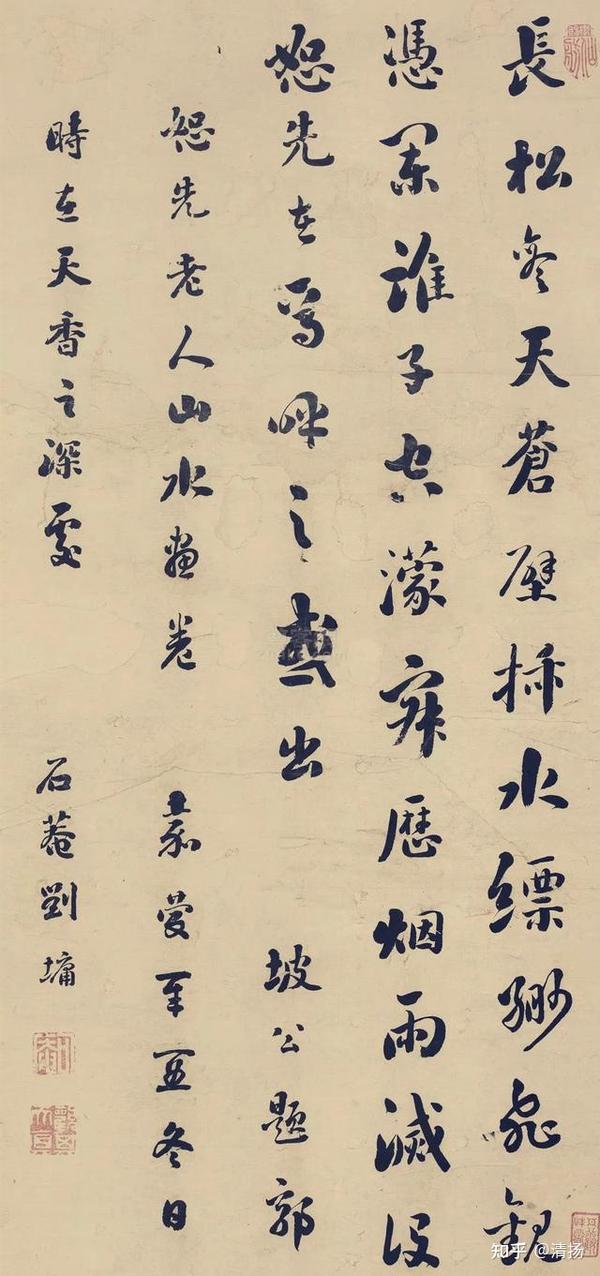 長松參天蒼壁插水縹緲飛觀
憑闌誰子空濛寂歷烟雨滅没
恕先在焉呼之或出 坡公題郭
恕先老人山水畫卷 嘉慶辛冬日
時在天香之深處 石菴劉墉
知乎 @清扬